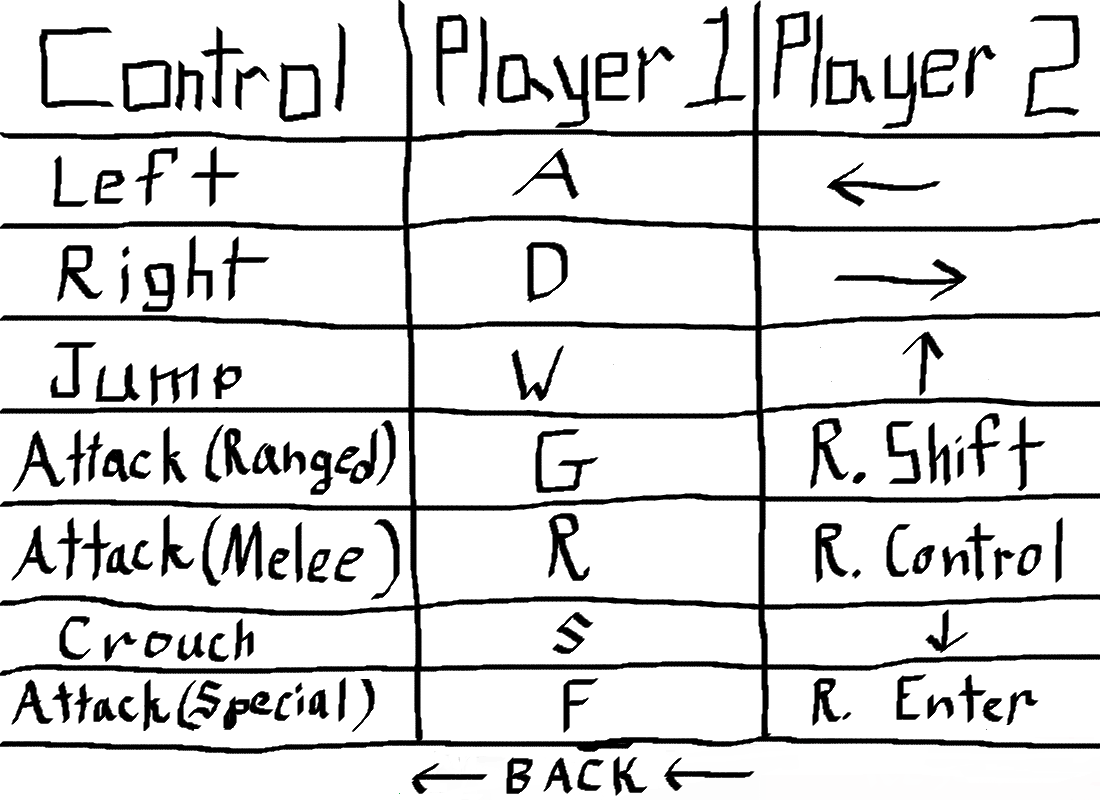 Control Player 1 Player 2
Left A ←
Right D →
Jump W ↑
Attack (Ranged) G R. Shift
Attack (Melee) R R. Control
Crouch S ↓
Attack (Special) F R. Enter
← BACK ←